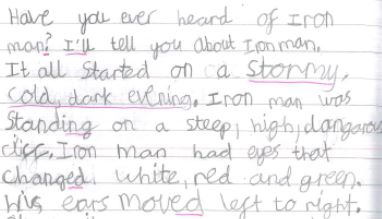 Have you ever heard of Iron
man? I'll tell you about Ironman.
It all started on a stormy,
cold, dark evening. Iron man was
Standing on a steep, high, dangarous
cliff. Iron man had eyes that
changed white, red and green.
his ears moved left to right.